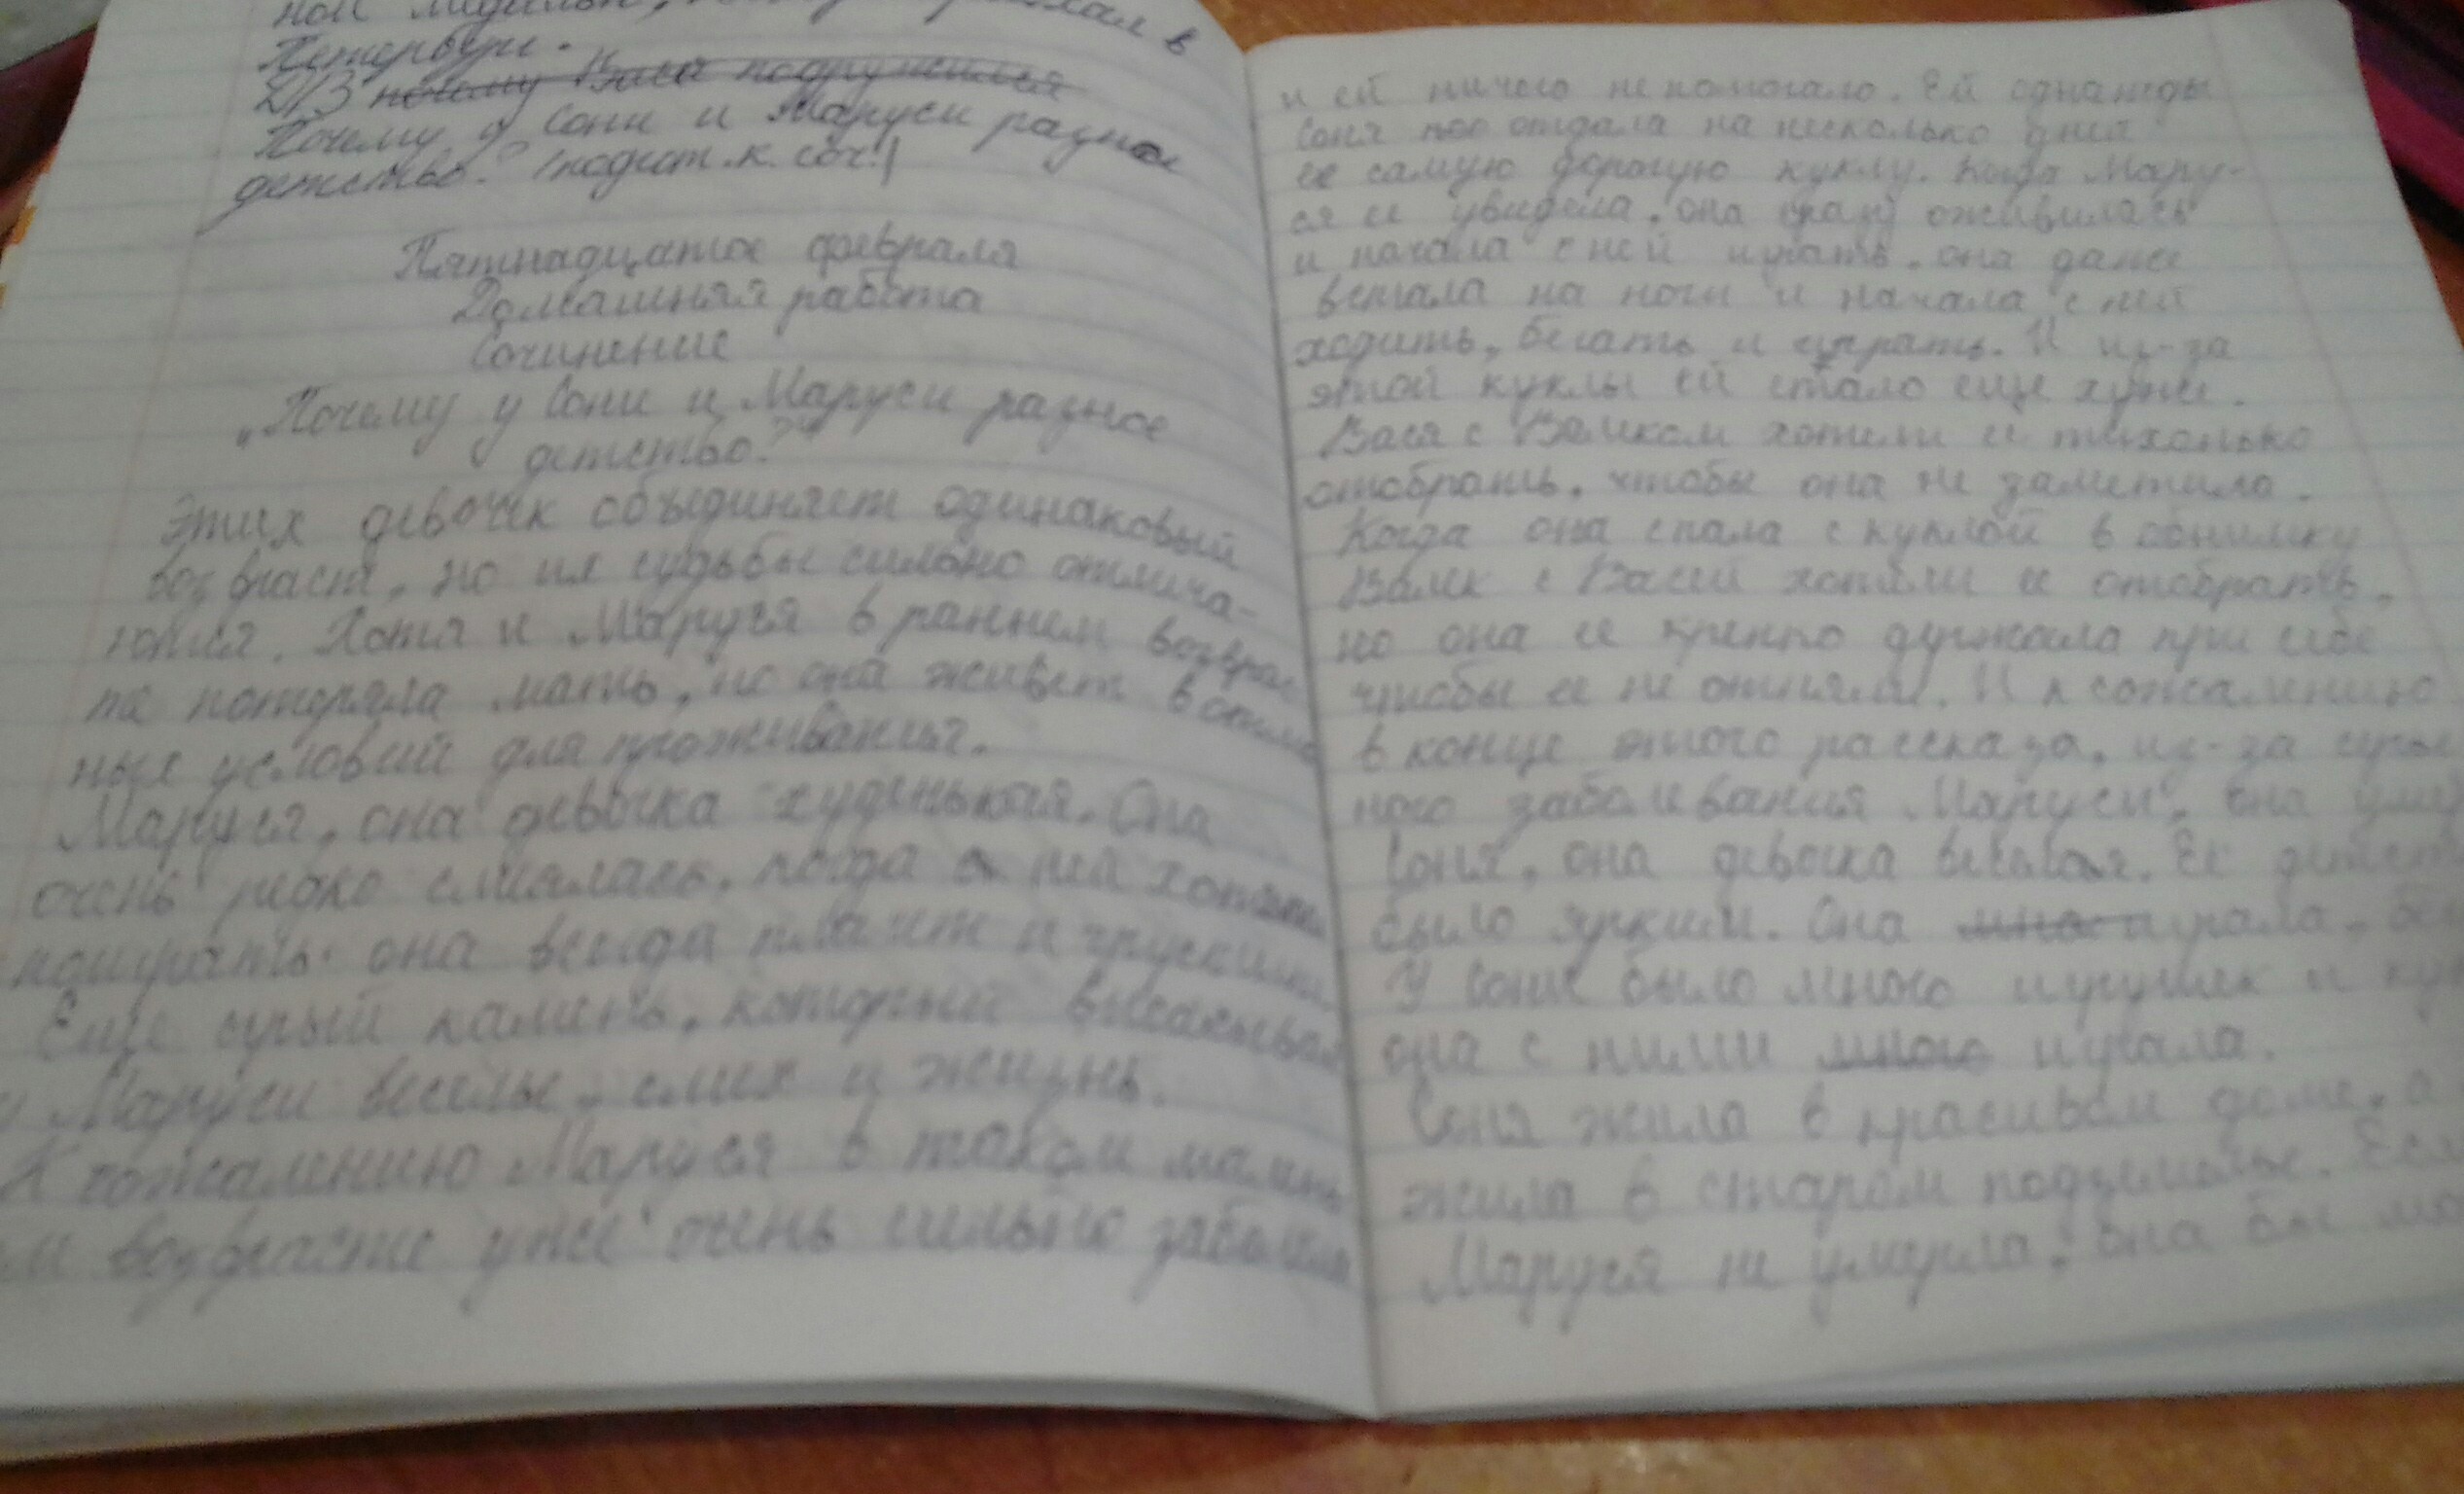 ной
в
Петербург.
Д/З почему Вася подружился
Почему у Сони и Маруси разное
детство? (подгот. к. соч.)
Пятнадцатое февраля
Домашняя работа
Сочинение
„Почему у Сони и Маруси разное
детство?"
Этих девочек объединяет одинаковый
возвраст, но их судьбы сильно отлича-
ются. Хотя и Маруся в раннем возврас
те потеряла мать, но она живёт в
ных условий для проживания.
Маруся, она девочка худенькая. Она
очень редко смеялась, когда с ней хотели
поиграть. она всегда плачет и
Еще серый камень, который высасывал
у Маруси веселье, смех и жизнь.
К сожалению Маруся в таком малень
ом возврасте уже очень сильно заболела
и ей ничего не помогало. Ей однажды
Соня отдала на несколько дней
ее самую дорогую куклу. Когда Мару-
ся ее увидела, она сразу оживилась
и начала с ней играть. она даже
встала на ноги и начала с ней
ходить, бегать и играть. И из-за
этой куклы ей стало еще хуже.
Вася с Валиком хотели ее тихонько
отобрать, чтобы она не заметила.
Когда она спала с куклой в обнимку
Валик с Васей хотели ее отобрать,
но она ее крепко держала при себе
чтобы ее не отняли. И к сожалению
в конце этого рассказа, из-за серьё
ного заболивания Маруси, она уме
Соня, она девочка веселая. Ее детст
было ярким. Она много играла, бег
У Сони было много игрушек и кук
она с ними много играла.
Соня жила в красивом доме, а
жила в старом подземелье. Есл
Маруся не умерла, она бы мо